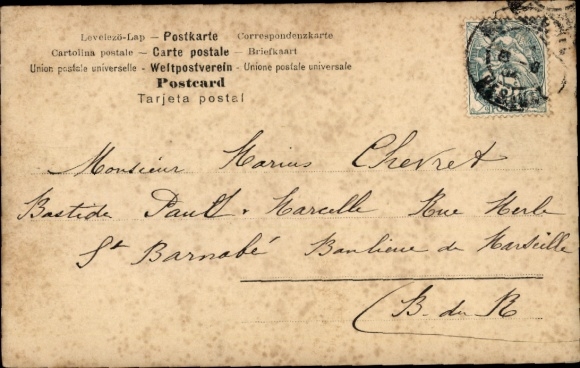 Levelezö-Lap — Postkarte — Correspondenzkarte
Cartolina postale — Carte postale — Briefkaart
Union postale universelle — Weltpostverein — Unione postale universale
Postcard
Tarjeta postal
Monsieur Marius Chevret
Bastide Paul & Marcelle Rue Merle
St Barnabé Banlieue de Marseille
B. du R